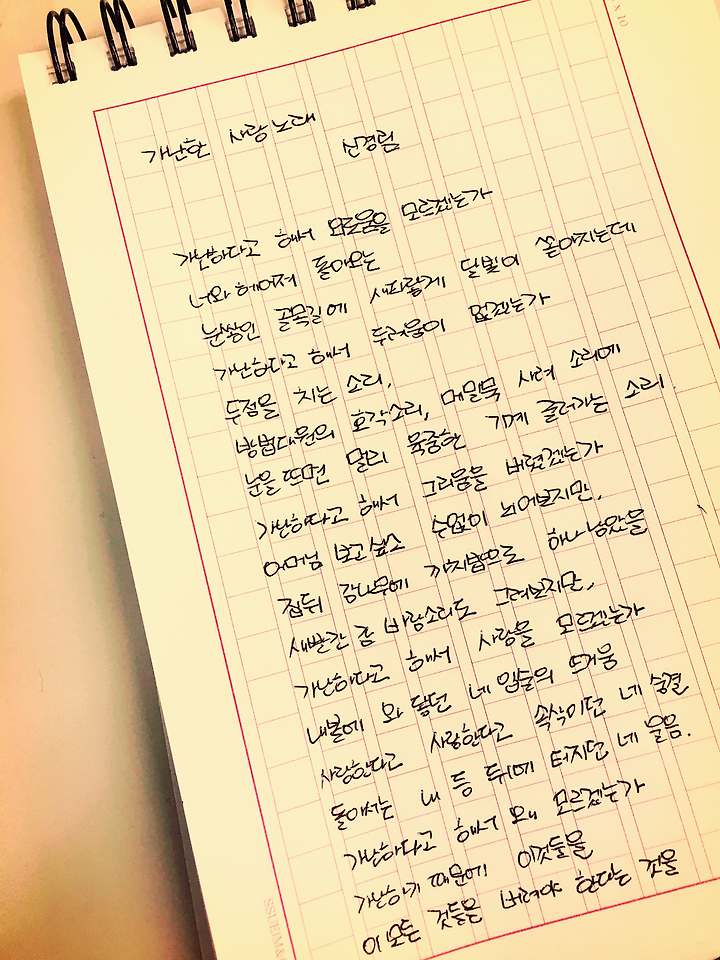 x 10
가난한 사랑노래
신경림
가난하다고 해서 외로움을 모르겠는가
너와 헤어져 돌아오는
눈쌓인 골목길에 새파랗게 달빛이 쏟아지는데
가난하다고 해서 두려움이 없겠는가
두점을 치는 소리,
방범대원의 호각소리, 메밀묵 사려 소리에
눈을 뜨면 멀리 육중한 기계 굴러가는 소리.
가난하다고 해서 그리움을 버렸겠는가
어머님 보고싶소 수없이 뇌어보지만,
집뒤 감나무에 까치밥으로 하나 남았을
새빨간 감 바람소리도 그려보지만,
가난하다고 해서 사랑을 모르겠는가
내볼에 와 닿던 네 입술의 뜨거움
사랑한다고 사랑한다고 속삭이던 네 숨결
돌아서는 내 등 뒤에 터지던 네 울음.
가난하다고 해서 왜 모르겠는가
가난하기 때문에 이것들을
이 모든 것들을 버려야 한다는 것을